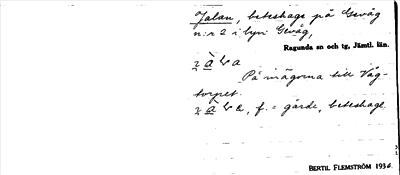 Jalan, beteshage på Gevåg
n:r 2 i byn Gevåg,
Ragunda sn och tg, Jämtl. län.
På mågorna till Våg-
torpet.
f. = gärde, beteshage
BERTIL FLEMSTRÖM 1936.